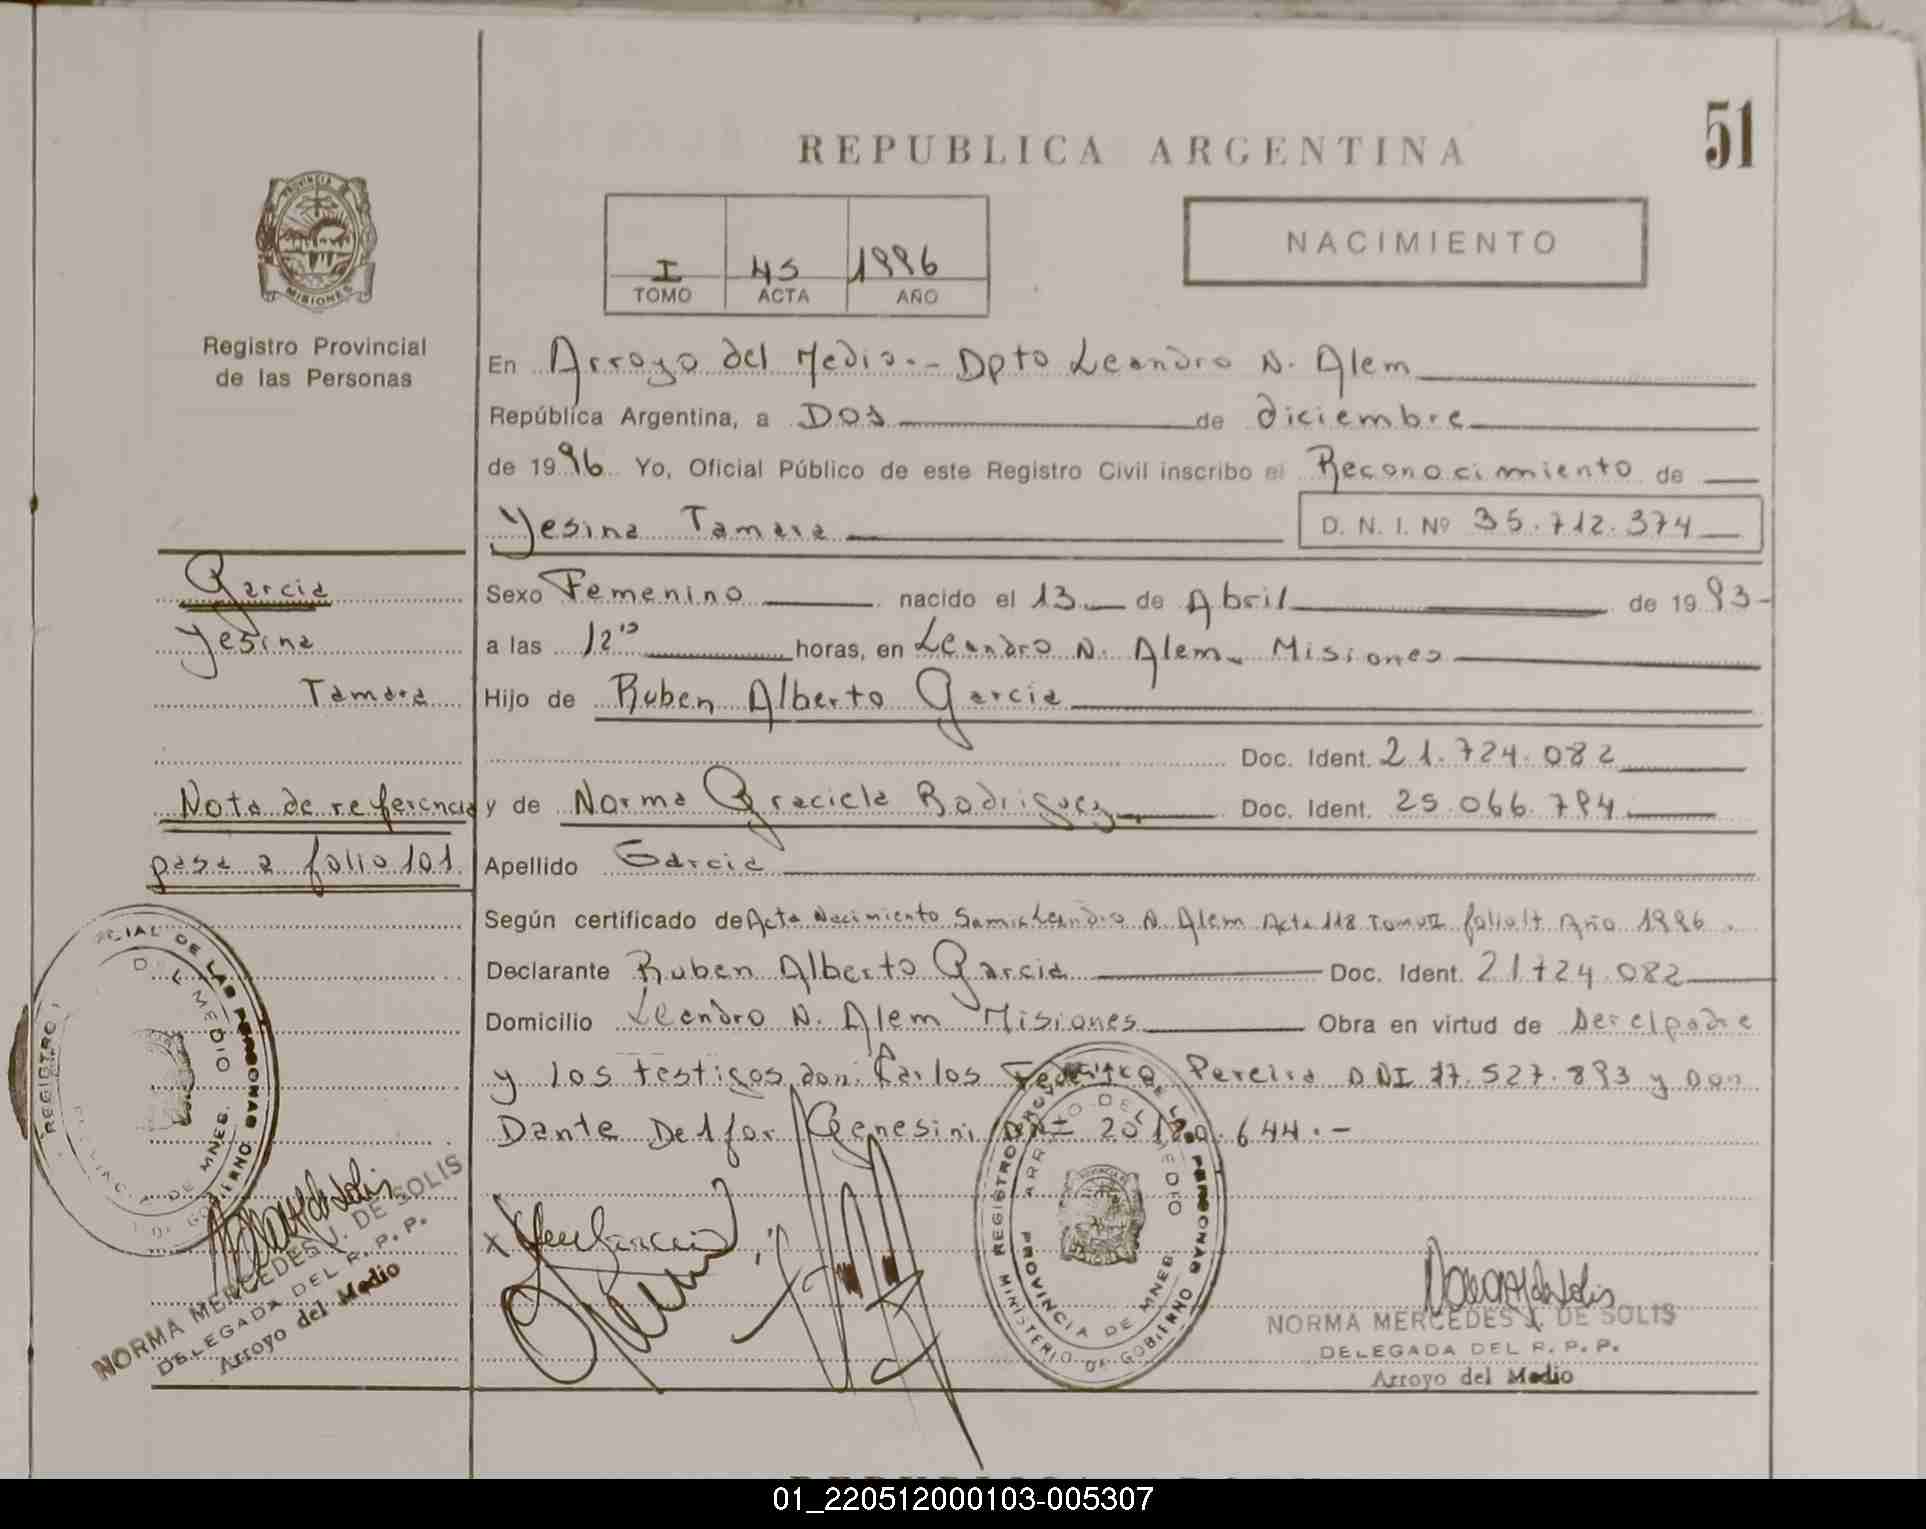 51
REPUBLICA ARGENTINA
NACIMIENTO
I 45 1996
TOMO ACTA AÑO
PROVINCIA DE
MISIONES
Registro Provincial
de las Personas
En Arroyo del Medio.- Dpto Leandro N. Alem
República Argentina, a Dos de diciembre
de 1996 Yo, Oficial Público de este Registro Civil inscribo el Reconocimiento de
Yesina Tamara D. N. I. Nº 35.712.374
Sexo Femenino nacido el 13 de Abril de 1993
a las 12 horas, en Leandro N. Alem Misiones
Hijo de Ruben Alberto Garcia
Doc. Ident. 21.724.082
y de Norma Graciela Rodriguez Doc. Ident. 25.066.794
Apellido Garcia
Según certificado de Acta Nacimiento Leandro N. Alem Acta 118 Tomo II folio Año 1996.
Declarante Ruben Alberto Garcia Doc. Ident. 21724.082
Domicilio Leandro N. Alem Misiones Obra en virtud de Ser el padre
y los testigos don Carlos Federico Pereira DNI 17.527.893 y Don
Dante Delfor Genesini DNI 644.-
Garcia
Yesina
Tamara
Nota de referencia
pasa a folio 101
REGISTRO PROVINCIAL DE LAS PERSONAS
ARROYO DEL MEDIO
PROVINCIA DE MNES.
MINISTERIO DE GOBIERNO
NORMA MERCEDES J. DE SOLIS
DELEGADA DEL R. P. P.
Arroyo del Medio
NORMA MERCEDES J. DE SOLIS
DELEGADA DEL R. P. P.
Arroyo del Medio
01_220512000103-005307